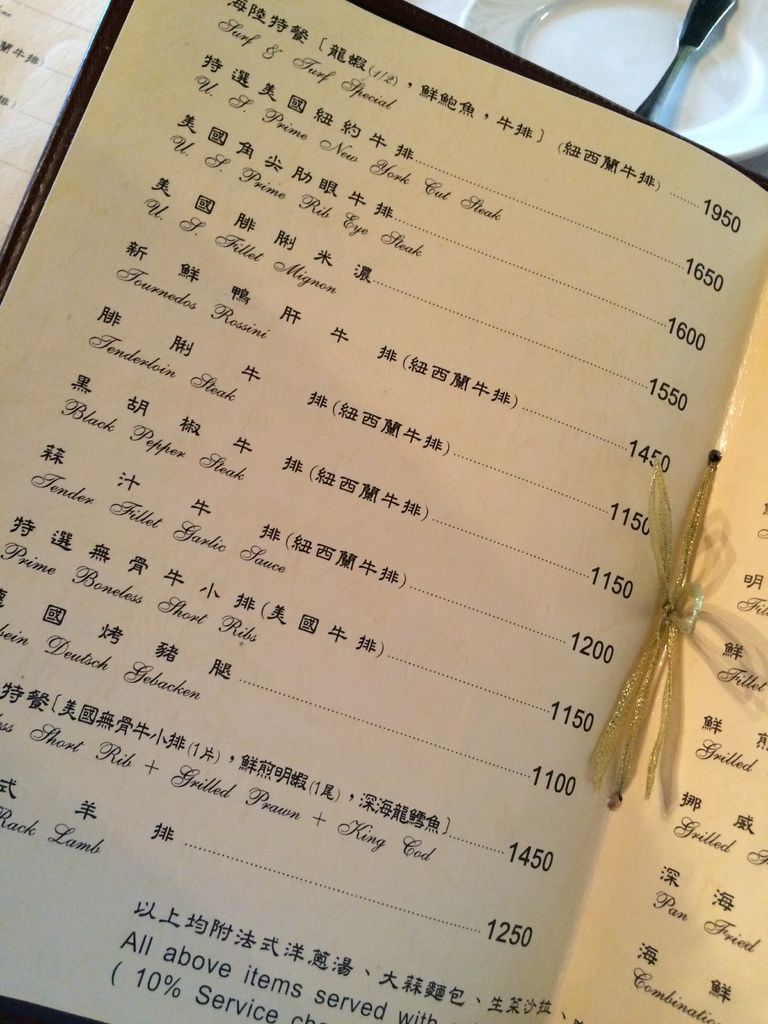 海陸特餐〔龍蝦(1/2),鮮鮑魚,牛排〕(紐西蘭牛排)......1950
Surf & Turf Special
特選美國紐約牛排......1650
U. S. Prime New York Cut Steak
美國角尖肋眼牛排......1600
U. S. Prime Rib Eye Steak
美國腓脷米濃......1550
U. S. Fillet Mignon
新鮮鴨肝牛排(紐西蘭牛排)......1450
Tournedos Rossini
腓脷牛排(紐西蘭牛排)......1150
Tenderloin Steak
黑胡椒牛排(紐西蘭牛排)......1150
Black Pepper Steak
蒜汁牛排(紐西蘭牛排)......1200
Tender Fillet Garlic Sauce
特選無骨牛小排(美國牛排)......1150
Prime Boneless Short Ribs
國烤豬腿......1100
Deutsch Gebacken
特餐〔美國無骨牛小排(1片),鮮煎明蝦(1尾),深海龍鱈魚〕......1450
Short Rib + Grilled Prawn + King Cod
式羊排......1250
Rack Lamb
以上均附法式洋蔥湯、大蒜麵包、生菜沙拉、
All above items served with
( 10% Service
明
鮮
Fillet
鮮煎
Grilled
挪威
Grilled
深海
Pan Fried
海鮮
蘭牛排)